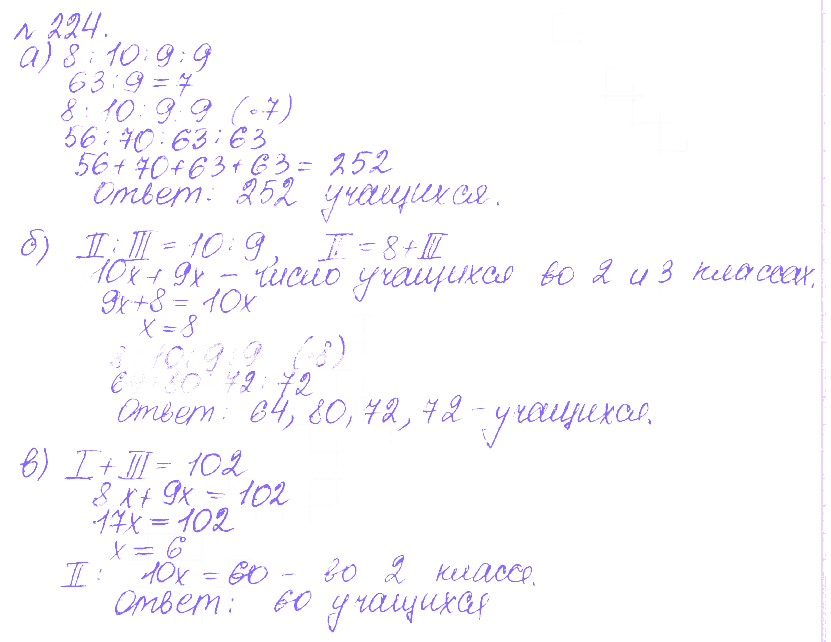 № 224.
а) 8 : 10 : 9 : 9
63 : 9 = 7
8 : 10 : 9 : 9 (·7)
56 : 70 : 63 : 63
56 + 70 + 63 + 63 = 252
Ответ: 252 учащихся.
б) II : III = 10 : 9, II = 8 + III
10x + 9x – число учащихся во 2 и 3 классах.
9x + 8 = 10x
x = 8
8 : 10 : 9 : 9 (·8)
64 : 80 : 72 : 72
Ответ: 64, 80, 72, 72 – учащихся.
в) I + III = 102
8x + 9x = 102
17x = 102
x = 6
II: 10x = 60 – во 2 классе.
Ответ: 60 учащихся